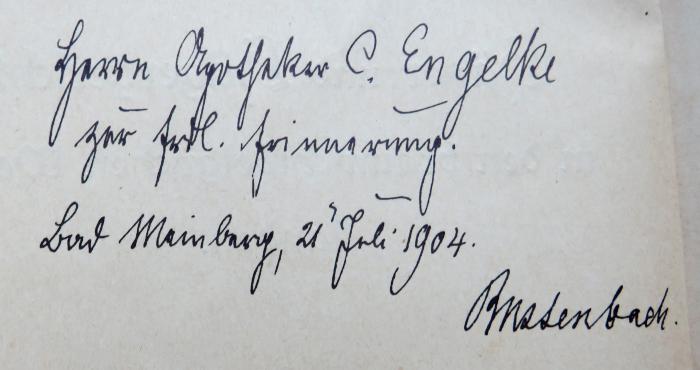 Herrn Apotheker C. Engelke
zur frdl. Erinnerung.
Bad Meinberg, 21 Juli 1904.